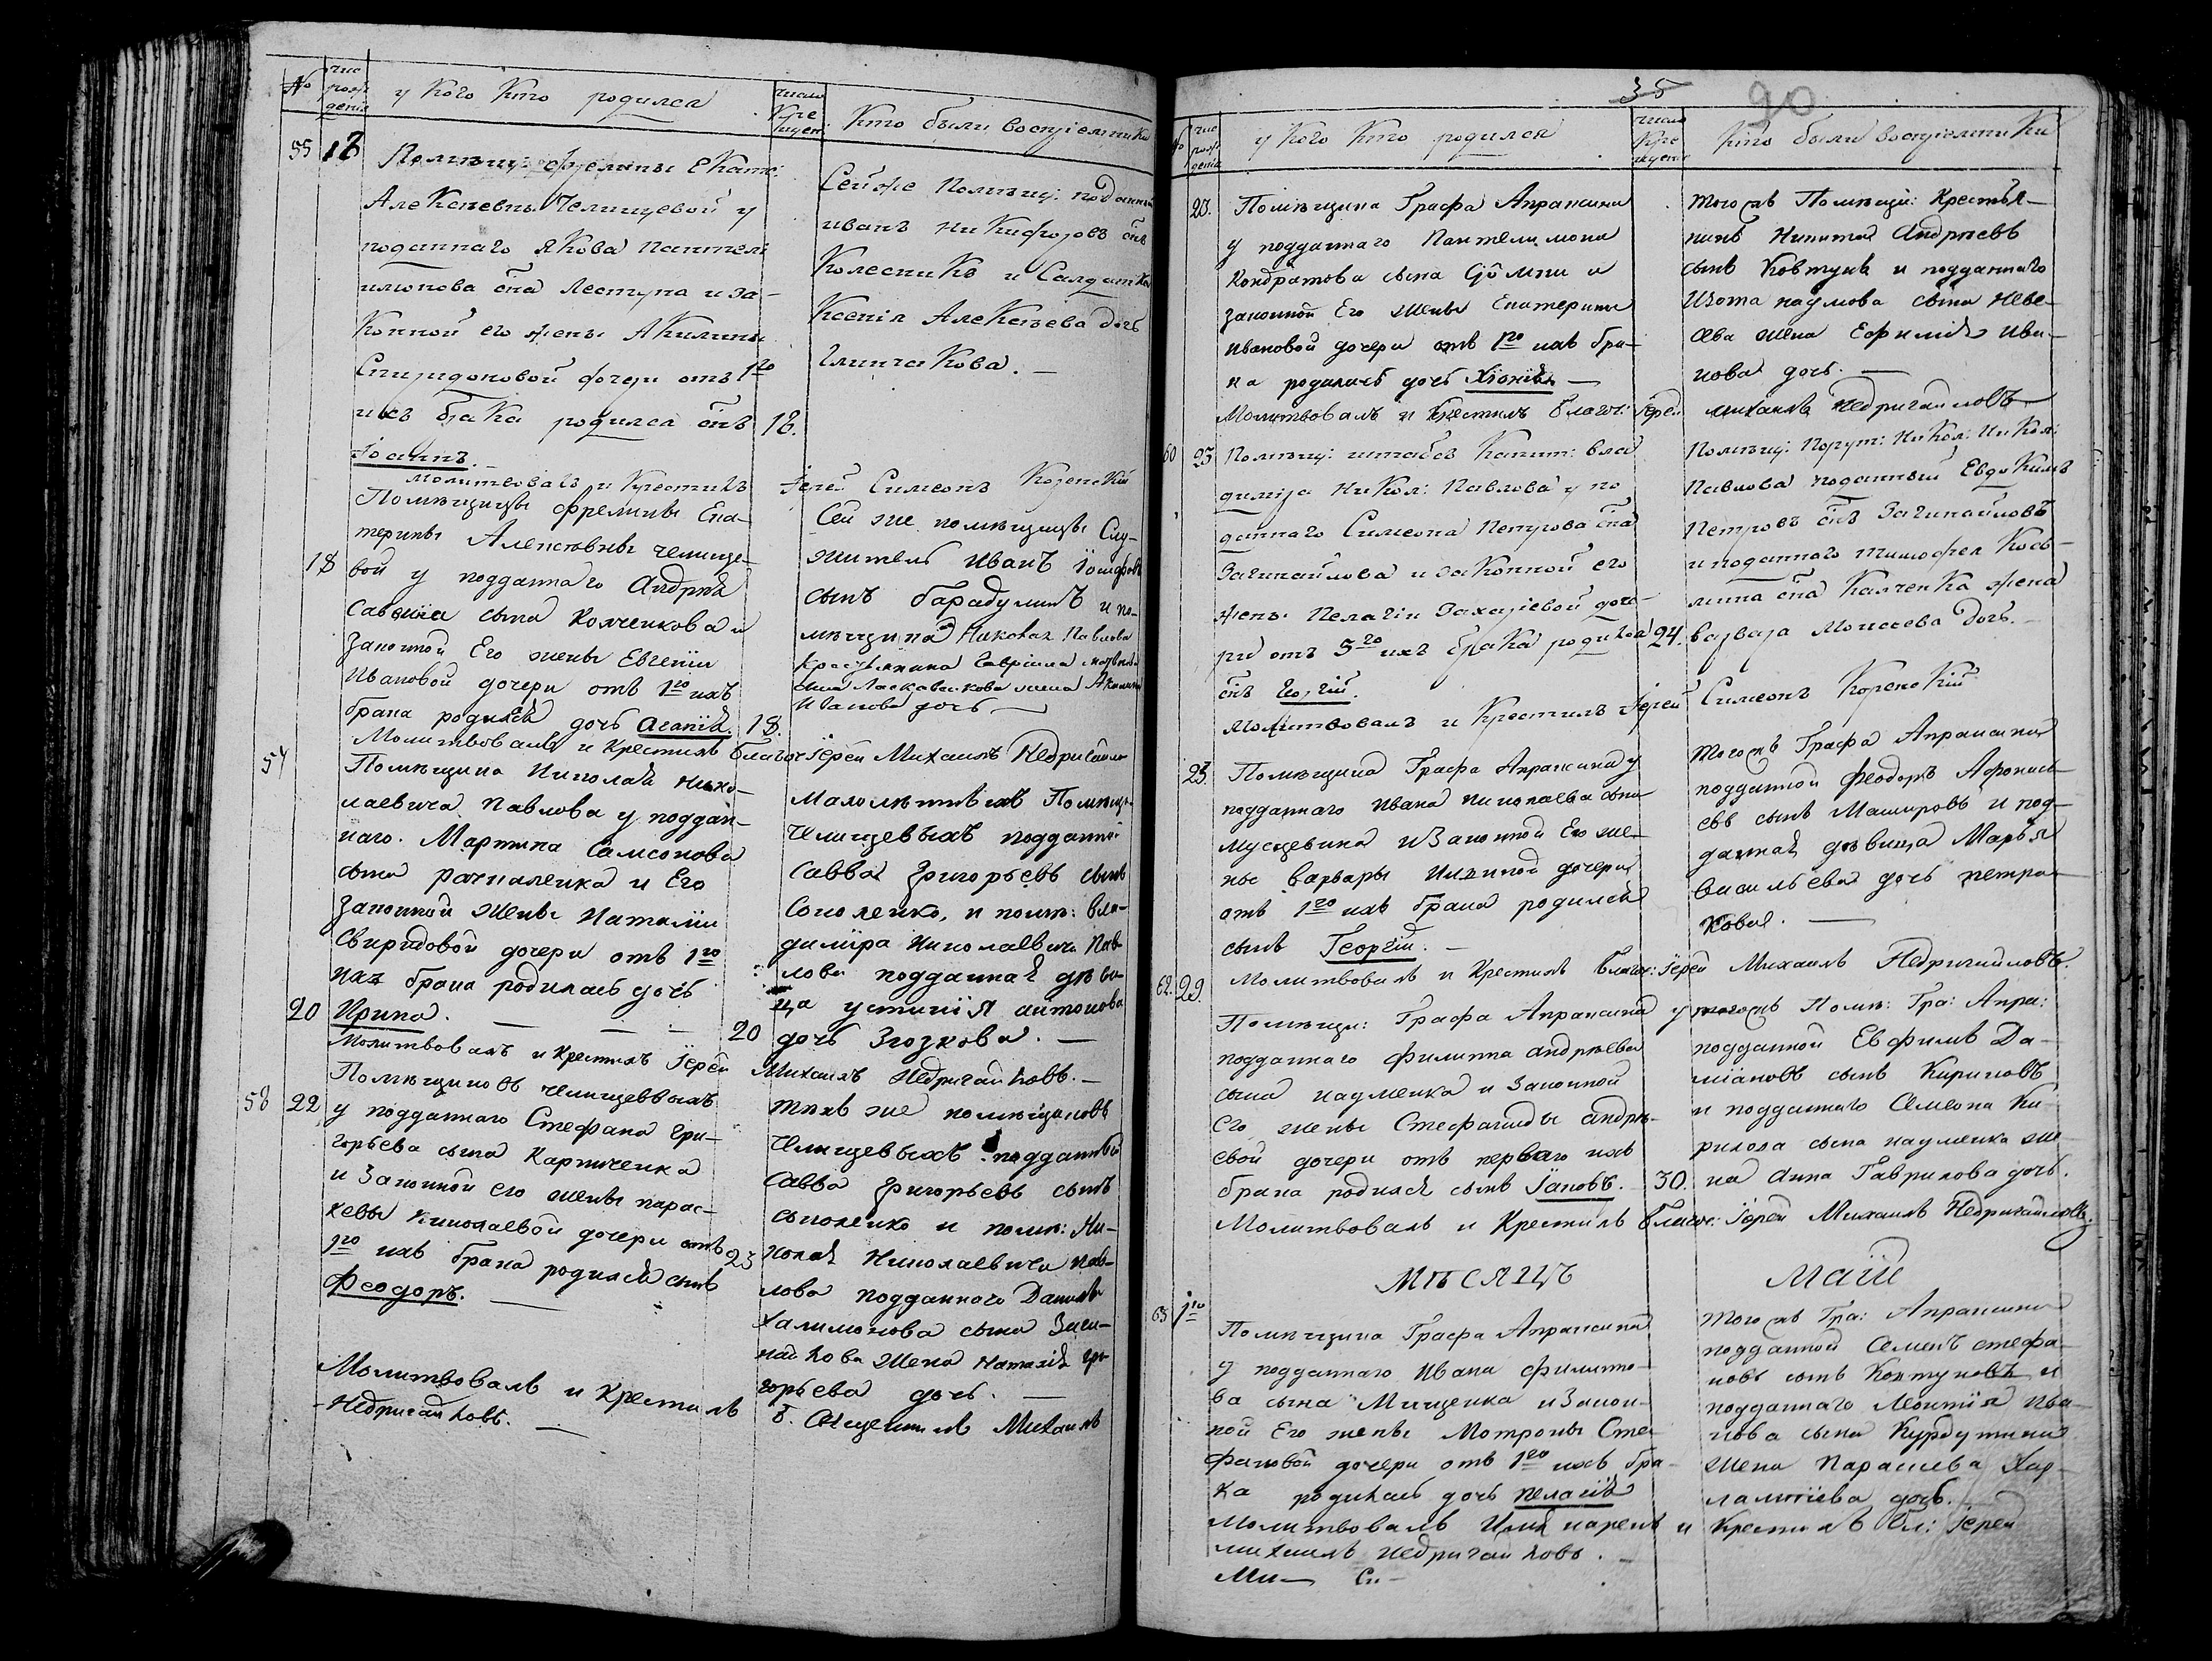 № число рожденія у кого кто родился число крещен: кто были воспріемники
55 18 Помѣщиц: фрелины Екате:
Алексѣевны Челищевой у
подданнаго Якова Пантели
имонова сна Лестуна и за-
конной его жены Акилины
Спиридоновой дочери отъ 1го
ихъ брака родился снъ 18.
Іоаннъ.
Сей же помѣщ: подданный
иванъ никифоровъ снъ
Колесникъ и Салдатка
Ксенія Алексѣева дочь
Глинчакова.
Молитвовалъ и Крестилъ Іерей Симеонъ Коренскій
Помѣщицы фрелины Ека-
терины Алексѣевны челище-
18 вой у подданнаго Андрея
Савина сына Колченкова и
Законной Его жены Евгеніи
Ивановой дочери отъ 1го ихъ
брака родилась дочь Агапія. 18.
Сей же помѣщицы Слу-
житель Иванъ
сынъ Барадулинъ и по-
мѣщика Николая Павлова
Крестьянина Гавріила
сына Ласкавенкова жена Акилина
Иванова дочь
Молитвовалъ и Крестилъ Благоч: Іерей Михаилъ Недригайло
57
Помѣщика Николая Нико-
лаевича Павлова у поддан-
наго Мартина Самсонова
сына Рачкаленка и Его
Законной жены Наталіи
Свиридовой дочери отъ 1го
ихъ брака родилась дочь
20 Ирина. 20
Малолѣтнихъ Помѣщи-
Челищевыхъ подданный
Савва Григорьевъ сынъ
Соколенко, и помѣ: Вла-
диміра Николаевича Пав-
лова подданная дѣви-
ца устинія антонова
дочь Згозкова.
Молитвовалъ и Крестилъ Іерей Михаилъ Недригайловъ.
58 22 Помѣщиковъ челищевыхъ
у подданнаго Стефана Гри-
горьева сына Карпиченка
и Законной его жены парас-
кевы Николаевой дочери отъ
1го ихъ брака родился сынъ 23
Феодоръ.
тѣхъ же помѣщиковъ
Челищевыхъ подданный
Савва Григорьевъ сынъ
соколенко и помѣ: Ни-
колая Николаевича Пав-
лова подданнаго Даниила
Халимонова сына Заги-
найлова жена Наталія Гри
горьева дочь.
Молитвовалъ и Крестилъ Б. Священникъ Михаилъ
Недригайловъ.
35 90
№ число рожденія у кого кто родился число крещенія кто были воспріемники
23. Помѣщика Графа Апраксина
у подданнаго Пантелимона
Кондратова сына и
законной Его жены Екатерины
Ивановой дочери отъ 1го ихъ бра-
ка родилась дочь Хіонія
тогожъ Помѣщи: Крестья-
нинъ Никита Андреевъ
сынъ Ковтунъ и подданнаго
Изота наумова сына Неве-
сева жена Ефимія Ива-
нова дочь.
Молитвовалъ и Крестилъ Благоч: Іерей михаилъ Недригайловъ
60 23 Помѣщ: штабсъ Капит: Вла
диміра Никол: Павлова у по
даннаго Симеона Петрова сна
Загинайлова и законной его
жены Пелагіи Захаріевой доче-
ри отъ 3го ихъ брака родился 24.
снъ Георгій.
Помѣщ: Порут: Никол: Никол:
Павлова поданный Евдокимъ
Петровъ снъ Загинайловъ
и поданнаго тимофея Кось-
мина сна Калченка жена
варвара Моисеева дочь.
Молитвовалъ и Крестилъ Іерей Симеонъ Коренскій
23. Помѣщика Графа Апраксина у
подданнаго Ивана Николаева сына
Мусцевика и Законной Его же-
ны Варвары Ильиной дочери
отъ 1го ихъ брака родился
сынъ Георгій.
тогожъ Графа Апраксина
подданной Феодоръ Афонась-
евъ сынъ Машировъ и под-
данная дѣвица Марья
Васильева дочь петра-
кова.
Молитвовалъ и Крестилъ Благоч: Іерей Михаилъ Недригайловъ.
62. 29. Помѣщи: Графа Апраксина у
подданнаго филиппа андреева
сына науменка и Законной
Его жены Стефаниды андре-
евой дочери отъ перваго ихъ
брака родился сынъ Іаковъ. 30.
тогожъ Помѣ: Гра: Апра:
подданной Евфимъ Да-
міановъ сынъ Кириловъ
и подданнаго Семеона Ки-
рилова сына науменка же-
на Анна Гаврилова дочь.
Молитвовалъ и Крестилъ Благоч: Іерей Михаилъ Недригайловъ.
Мѣсяцъ Маій
63 1го Помѣщика Графа Апраксина
у подданнаго Ивана филиппо-
ва сына Мищенка и Закон-
ной Его жены Мотроны Сте-
фановой дочери отъ 1го ихъ бра-
ка родилась дочь Пелагія
тогожъ Гра: Апраксина
подданной Семенъ стефа-
новъ сынъ Ковтуновъ и
подданнаго Леонтія Ива-
нова сына Курдутина
жена Параскева Хар-
лампіева дочь.
Молитвовалъ Имя нарекъ и Крестилъ Бл: Іерей
михаилъ Недригайловъ.